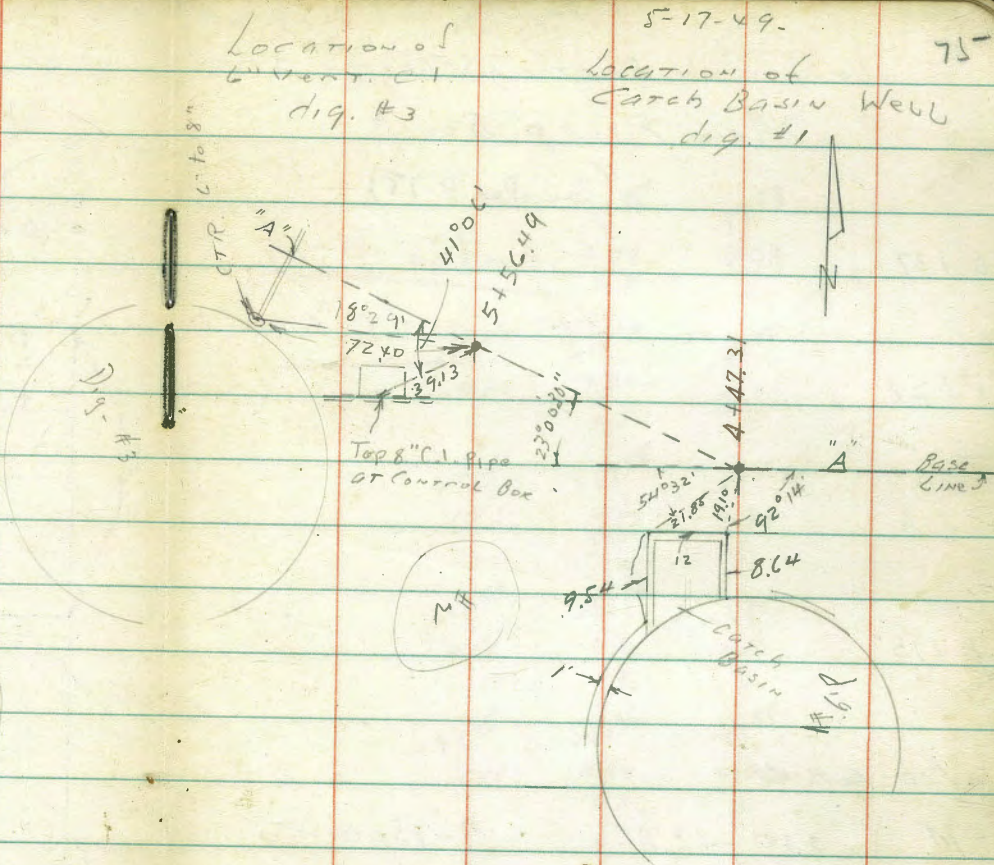 5-17-49.
75
Location of
6" Vent. C.I.
dig. #3
Location of
Catch Basin Well
dig. #1
CTR. 6" to 8"
"A"
41°06'
5+56.49
18°29'
72.40
39.13
N
Dig- #3
Top 8" C.I. Pipe
at Control Box
23°00'20"
4+47.31
"A"
Base
Line
54°32'
21.85
19.10
92°14'
12
8.64
9.54
#2
Catch
Basin
1'
Dig. #1